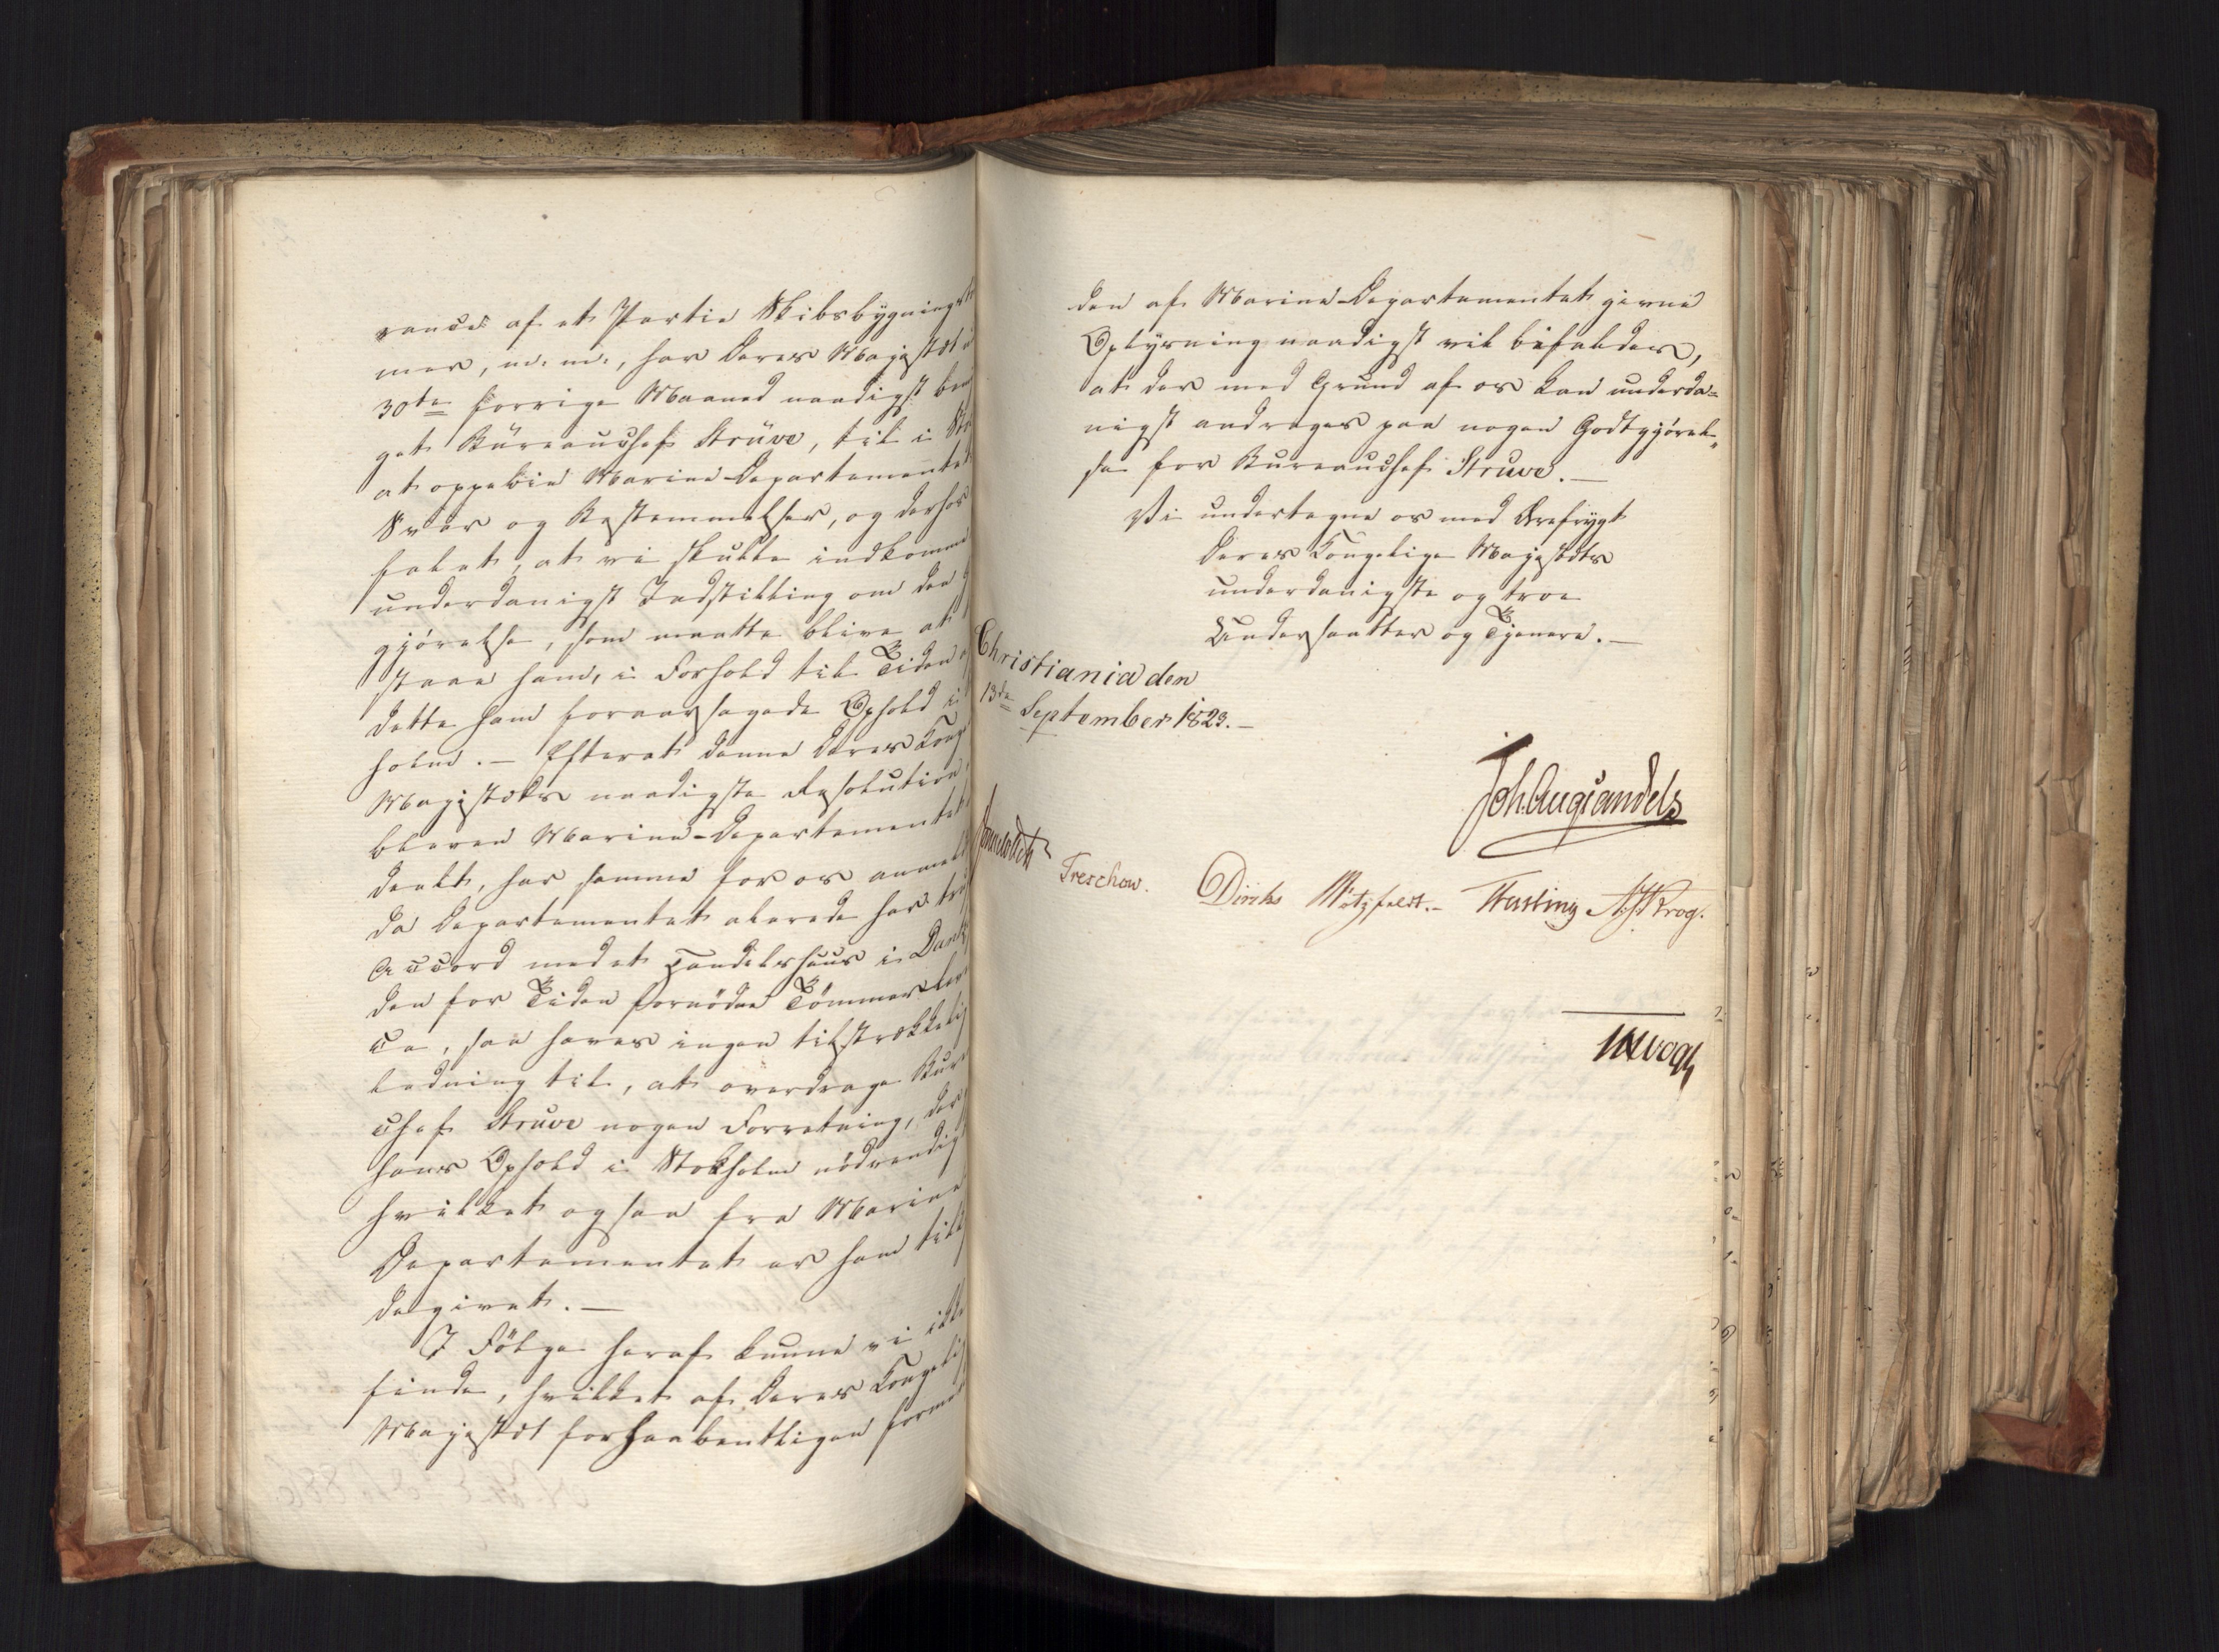 rance af et Partie Skibsbygnings
mer, m. m., har Deres Majestæt
30te forrige Maaned naadigst
get Büreauchef Strüve, til i
at oppebie Marine-Departementets
Svar og Bestemmelser, og derhos
falet, at vi skulle indkomme
underdanigst Indstilling om den
gjörelse, som maatte blive at
staae ham, i Forhold til Tiden
dette ham foraarsagede Ophold i
holm. — Efterat denne Deres
Majestæts naadigste Resolution
bleven Marine-Departementet
deelt, har samme for os anmeldt
da Departementet allerede har
Accord med et Handelshuus i
den for Tiden fornödne Tömmer
ce, saa haves ingen tilstrækkelig
ledning til, at overdrage
chef Struve nogen Forretning, der
hans Ophold i Stokholm nödvendig
hvilket ogsaa fra Marine
Departementet er ham
degivet. —
I Fölge heraf kunne vi ikke
finde, hvilket af Deres Kongelig
Majestæt forhaabentligen
den af Marine-Departementet givne
Oplysning naadigst vil bifaldes,
at der med Grund af os kan underda=
nigst andrages paa nogen Godtgjörel„
se for Bureauchef Struve. —
Vi undertegne os med Ærefrygt
Deres Kongelige Majestæts
underdanigste og troe
Undersaatter og Tjenere. —
Christiania den
13de September 1823. —
Joh. Aug Sandels
Sommerhielm
Treschow.
Diriks Motzfeldt. - Fasting Krog.
Vogt